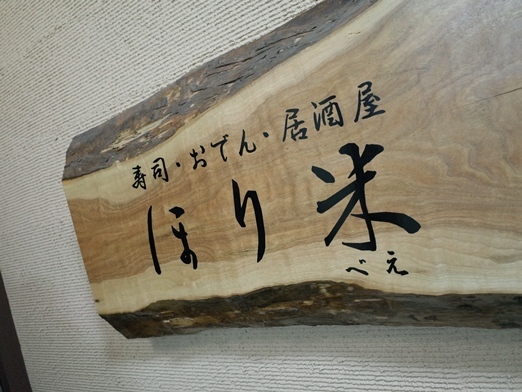 寿司・おでん・居酒屋
ほり米
べえ